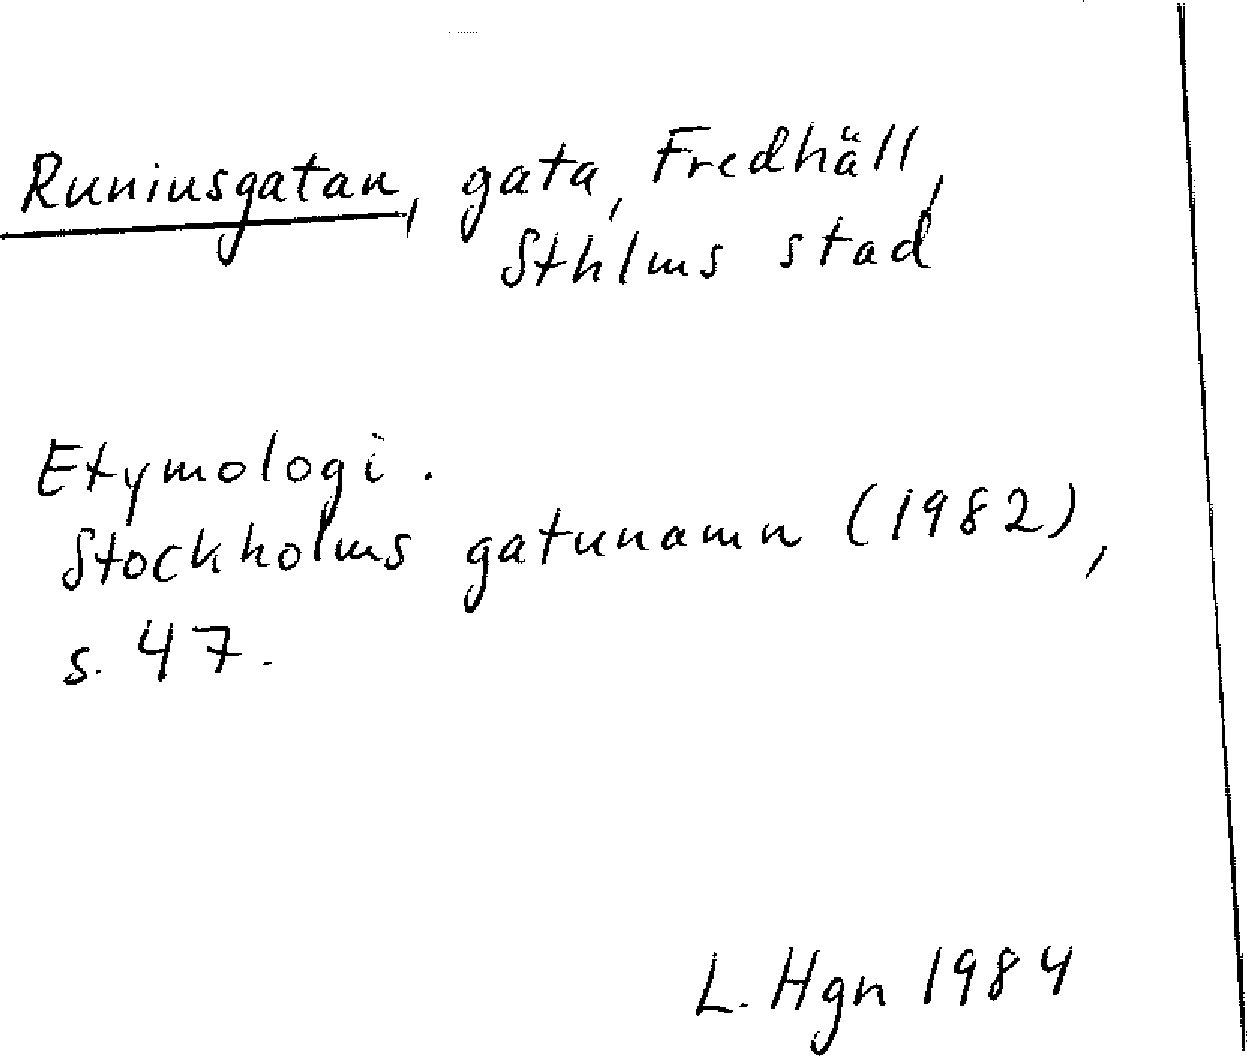 Runiusgatan, gata, Fredhäll,
Sthlms stad
Etymologi.
Stockholms gatunamn (1982),
s. 47.
L. Hgn 1984